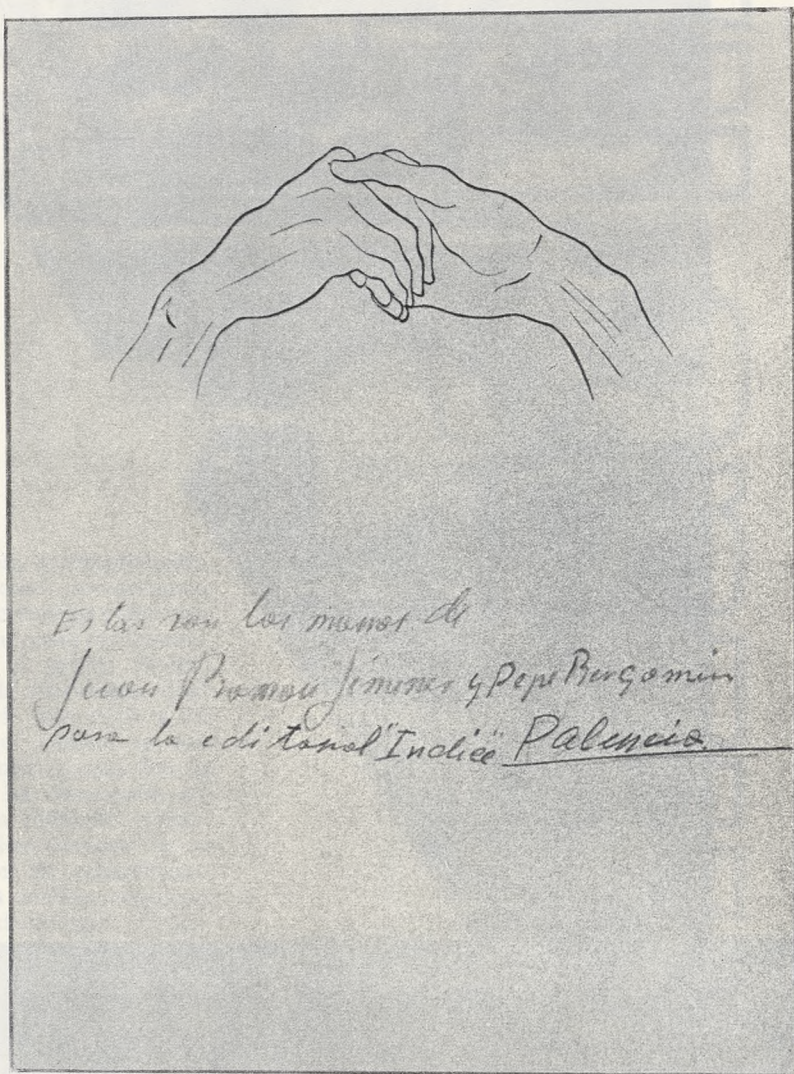 Estas son las manos de
Juan Ramon Jimenez y Pepe Bergamin
para la editorial "Indice" Palencia